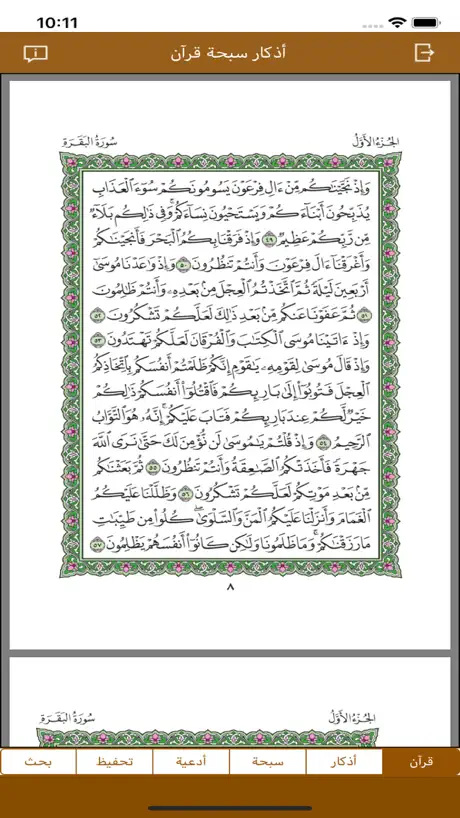 10:11
أذكار سبحة قرآن
سُورَةُ البَقَرَة
الجُزءُ الأَوَّلُ
وَإِذْ نَجَّيْنَٰكُم مِّنْ ءَالِ فِرْعَوْنَ يَسُومُونَكُمْ سُوٓءَ ٱلْعَذَابِ
يُذَبِّحُونَ أَبْنَآءَكُمْ وَيَسْتَحْيُونَ نِسَآءَكُمْ ۚ وَفِى ذَٰلِكُم بَلَآءٌ
مِّن رَّبِّكُمْ عَظِيمٌ ٤٩ وَإِذْ فَرَقْنَا بِكُمُ ٱلْبَحْرَ فَأَنجَيْنَٰكُمْ
وَأَغْرَقْنَآ ءَالَ فِرْعَوْنَ وَأَنتُمْ تَنظُرُونَ ٥٠ وَإِذْ وَٰعَدْنَا مُوسَىٰٓ
أَرْبَعِينَ لَيْلَةً ثُمَّ ٱتَّخَذْتُمُ ٱلْعِجْلَ مِنۢ بَعْدِهِۦ وَأَنتُمْ ظَٰلِمُونَ
٥١ ثُمَّ عَفَوْنَا عَنكُم مِّنۢ بَعْدِ ذَٰلِكَ لَعَلَّكُمْ تَشْكُرُونَ ٥٢
وَإِذْ ءَاتَيْنَا مُوسَى ٱلْكِتَٰبَ وَٱلْفُرْقَانَ لَعَلَّكُمْ تَهْتَدُونَ ٥٣
وَإِذْ قَالَ مُوسَىٰ لِقَوْمِهِۦ يَٰقَوْمِ إِنَّكُمْ ظَلَمْتُمْ أَنفُسَكُم بِٱتِّخَاذِكُمُ
ٱلْعِجْلَ فَتُوبُوٓا۟ إِلَىٰ بَارِئِكُمْ فَٱقْتُلُوٓا۟ أَنفُسَكُمْ ذَٰلِكُمْ
خَيْرٌ لَّكُمْ عِندَ بَارِئِكُمْ فَتَابَ عَلَيْكُمْ ۚ إِنَّهُۥ هُوَ ٱلتَّوَّابُ
ٱلرَّحِيمُ ٥٤ وَإِذْ قُلْتُمْ يَٰمُوسَىٰ لَن نُّؤْمِنَ لَكَ حَتَّىٰ نَرَى ٱللَّهَ
جَهْرَةً فَأَخَذَتْكُمُ ٱلصَّٰعِقَةُ وَأَنتُمْ تَنظُرُونَ ٥٥ ثُمَّ بَعَثْنَٰكُم
مِّنۢ بَعْدِ مَوْتِكُمْ لَعَلَّكُمْ تَشْكُرُونَ ٥٦ وَظَلَّلْنَا عَلَيْكُمُ
ٱلْغَمَامَ وَأَنزَلْنَا عَلَيْكُمُ ٱلْمَنَّ وَٱلسَّلْوَىٰ ۖ كُلُوا۟ مِن طَيِّبَٰتِ
مَا رَزَقْنَٰكُمْ ۖ وَمَا ظَلَمُونَا وَلَٰكِن كَانُوٓا۟ أَنفُسَهُمْ يَظْلِمُونَ ٥٧
٨
سُورَةُ البَقَرَة
الجُزءُ الأَوَّلُ
قرآن
أذكار
سبحة
أدعية
تحفيظ
بحث